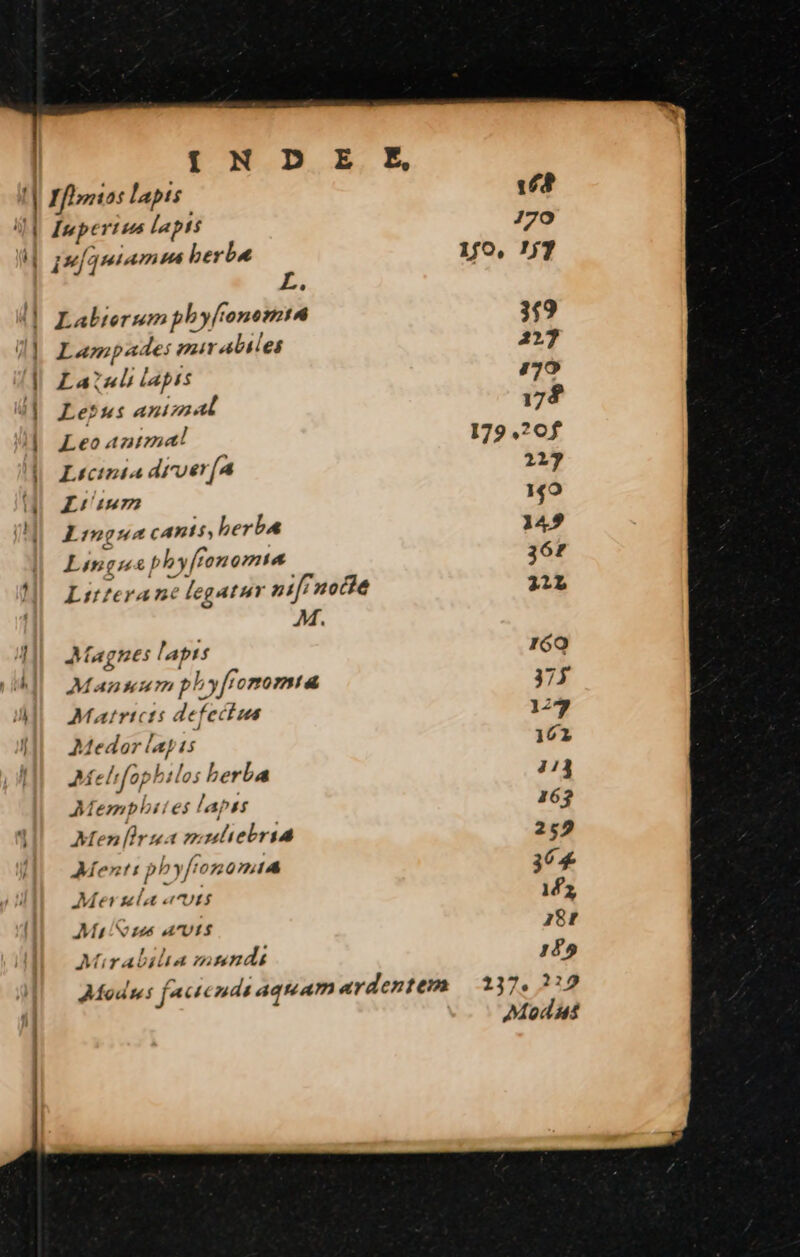 I N D E X.
Iſſmios lapis 168
Iuperius lapis 170
juſquiamus herba 150, 157
L.
Labiorum phyſionomia 369
Lampades mirabiles 227
Lazuli lapis 170
Lepus animal 178
Leo animal 179. 205
Licinia diverſa 227
Lilium 140
Lingua canis, herba 149
Linguæ phyſſonomia 367
Litteræ ne legatur niſi nocte 222
M.
Magnes lapis 160
Manuum phyſionomia 375
Matricis defectus 127
Medor lapis 162
Meliſophilos herba
Memphites lapis 163
Menſtrua muliebria 259
Menti phyſionomia 364
Merula avis 182
Milvus avis 181
Mirabilia mundi 189
Modus faciendi aquam ardentem 237. 229
Modus